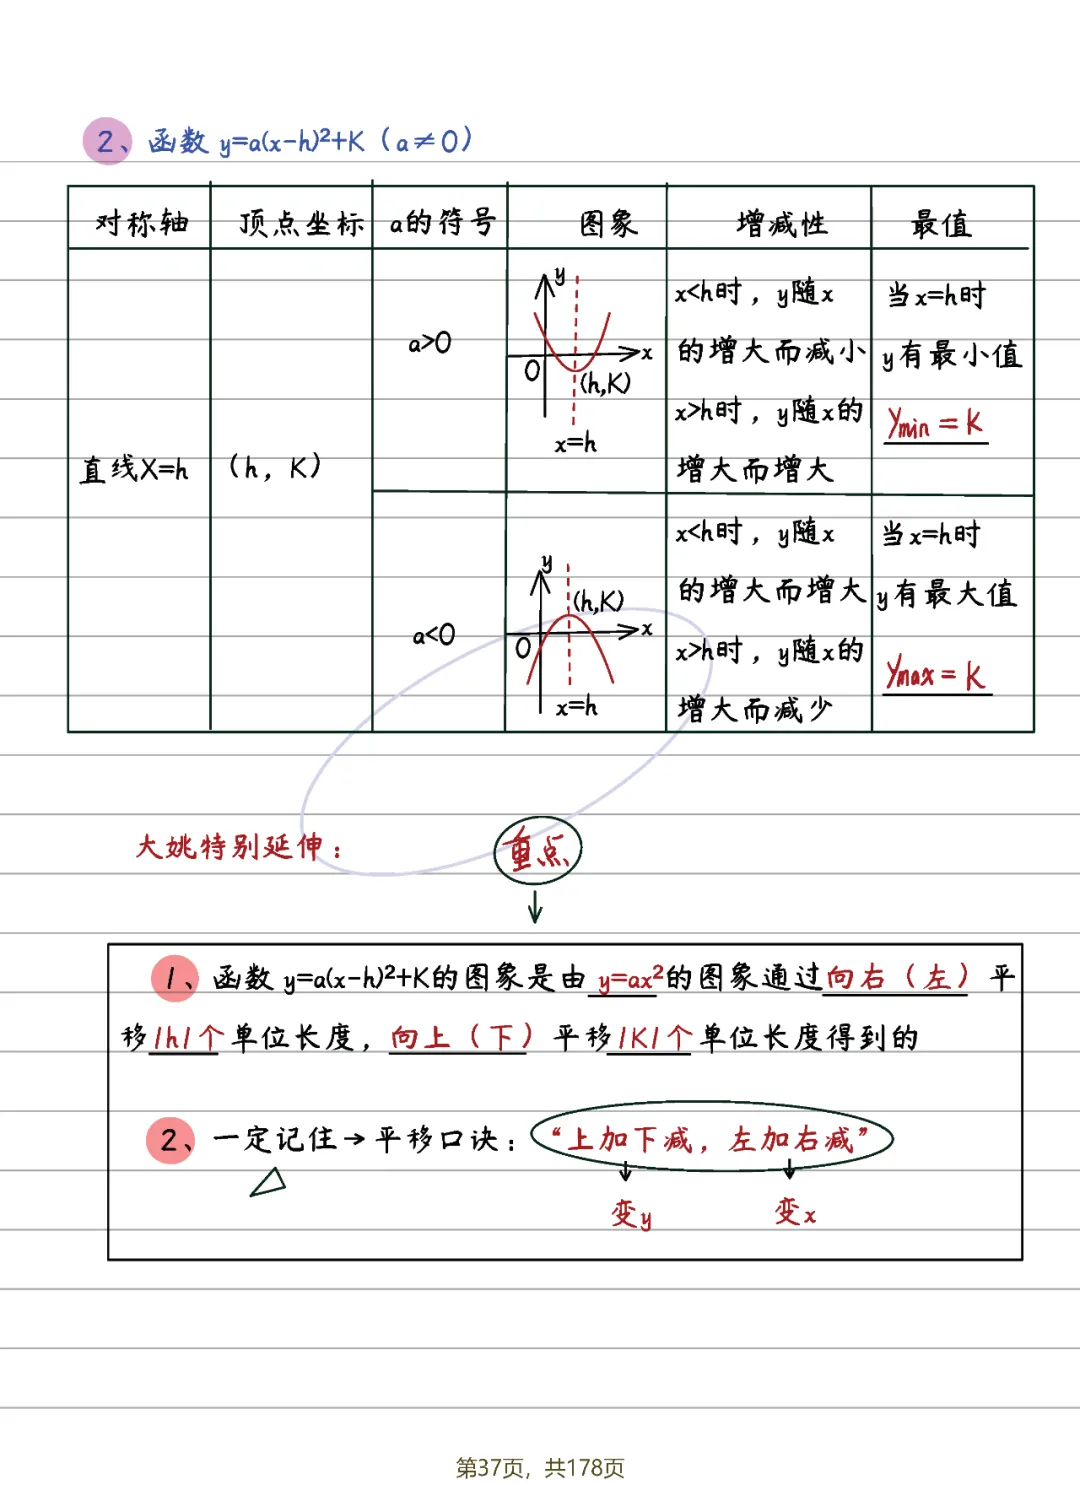 2、函数 y=a(x-h)²+K（a≠0）
对称轴 顶点坐标 a的符号 图象 增减性 最值
直线X=h
（h，K）
a>0
y
x
O
(h,K)
x=h
x<h时，y随x
的增大而减小
x>h时，y随x的
增大而增大
当x=h时
y有最小值
Ymin=K
a<0
y
(h,K)
x
O
x=h
x<h时，y随x
的增大而增大
x>h时，y随x的
增大而减少
当x=h时
y有最大值
Ymax=K
大姚特别延伸：
重点
1、函数 y=a(x-h)²+K的图象是由 y=ax²的图象通过向右（左）平
移|h|个单位长度，向上（下）平移|K|个单位长度得到的
2、一定记住→平移口诀：“上加下减，左加右减”
变y 变x
第37页，共178页